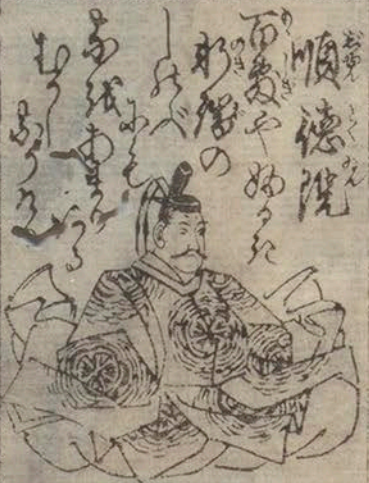 順徳院
百敷やふるき
軒端の
しのぶ
にも
なをあまりある
むかし
なりけり